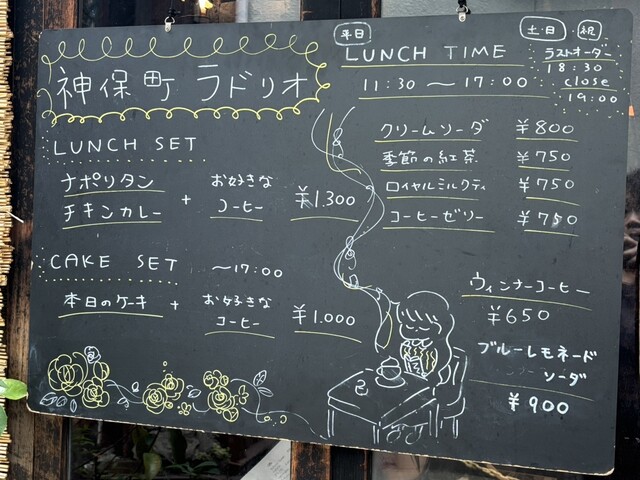 神保町 ラドリオ
LUNCH SET
ナポリタン
チキンカレー
+
お好きな
コーヒー
¥1.300
CAKE SET
〜17:00
本日のケーキ
+
お好きな
コーヒー
¥1.000
平日
LUNCH TIME
11:30 〜 17:00
土・日・祝
ラストオーダー
18:30
close
19:00
クリームソーダ ¥800
季節の紅茶 ¥750
ロイヤルミルクティ ¥750
コーヒーゼリー ¥750
ウィンナーコーヒー
¥650
ブルーレモネード
ソーダ
¥900